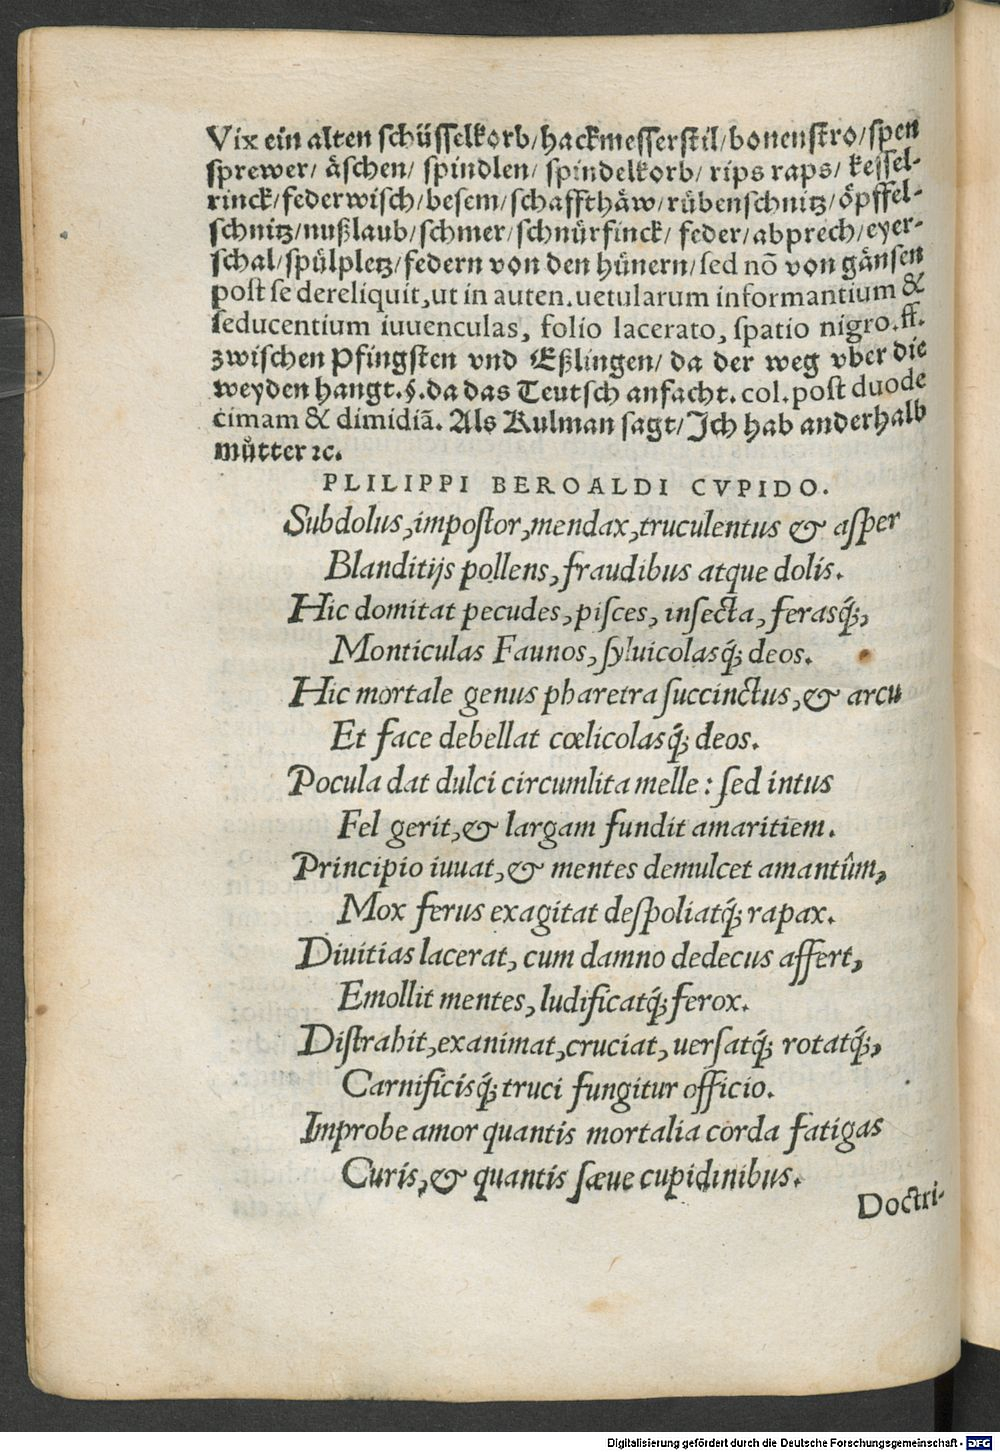 Vix ein alten schüsselkorb/hackmesserstil/bonenstro/spen
sprewer/ äschen/ spindlen/ spindelkorb/ rips raps/ kessel-
rinck/federwisch/besem/schaffthäw/rübenschnitz/öpffel-
schnitz/nußlaub/schmer/schnürfinck/ feder/abprech/eyer-
schal/spülpletz/federn von den hünern/sed nõ von gänsen
post se dereliquit,ut in auten.uetularum informantium &
seducentium iuuenculas, folio lacerato, spatio nigro.ff.
zwischen Pfingsten vnd Eßlingen/ da der weg vber die
weyden hangt.§.da das Teutsch anfacht. col.post duode
cimam & dimidiã. Als Kulman sagt/Ich hab anderhalb
můtter ⁊c.
PLILIPPI BEROALDI CVPIDO.
Subdolus,impostor,mendax,truculentus & asper
Blanditijs pollens,fraudibus atque dolis.
Hic domitat pecudes,pisces, insecta, ferasq́;,
Monticulas Faunos, syluicolasq́; deos.
Hic mortale genus pharetra succinctus,& arcu
Et face debellat cœlicolasq́; deos.
Pocula dat dulci circumlita melle : sed intus
Fel gerit,& largam fundit amaritiem.
Principio iuuat,& mentes demulcet amantûm,
Mox ferus exagitat despoliatq́; rapax.
Diuitias lacerat, cum damno dedecus affert,
Emollit mentes, ludificatq́; ferox.
Distrahit,exanimat,cruciat, uersatq́; rotatq́;,
Carnificisq́; truci fungitur officio.
Improbe amor quantis mortalia corda fatigas
Curis,& quantis sæue cupidinibus.
Doctri-
Digitalisierung gefördert durch die Deutsche Forschungsgemeinschaft - DFG